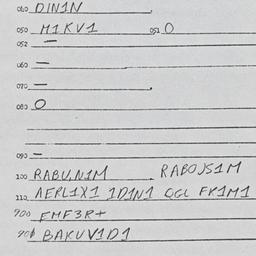 040 DIN1N
050 H1KV1 051 O
052 —
060 —
070 —
080 O
090 -
100 RABU,N1M RABOJS1M
110 AERL1X1 1D1N1 OGL FK1M1
700 EMF3R+
701 BAKUV1D1